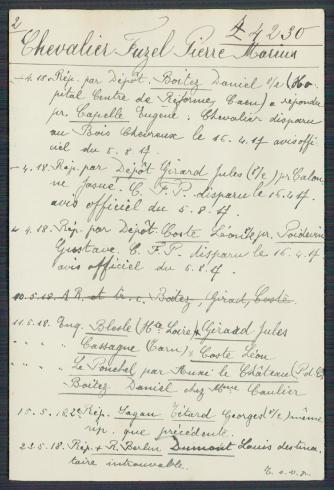 2
A 4230
Chevalier Fuzel Pierre Marius
-4.18. Rép. par Dépôt: Boitez Daniel 2/e (Ho-
pital Centre de Réformes, Caen) a répondu
pr. Capelle Eugène: Chevalier disparu
au Bois Chevreux le 16.4.17 avis offi-
ciel du 5.8.17.
-4.18. Rép. par Dépôt Girard Jules (2/e) pr Calon-
ne Josué. C. F. P. disparu le 16.4.17.
avis officiel du 5.8.17
4.4.18. Rép. par Dépôt Coste Léon 2/e pr. Poiderin
Gustave. C. F. P. disparu le 16.4.17
avis officiel du 5.8.17.
10.5.18. A R. et tr. c. Boitez, Girad, Coste
11.5.18. Enq. Blosle (Hte Loire) Giraud Jules
" " " Cassagne (Tarn) Coste Léon
" " " Le Ponchel par Auxi le Château (P. d. C)
Boitez Daniel chez Mme Caulier
15.5.18 2e Rép. Sagan Tétard Georges 2/e) même
rép. que précédente.
23.5.18. Rép. + R. Berlin Dumont Louis destina-
taire introuvable.
T. s. v. p.